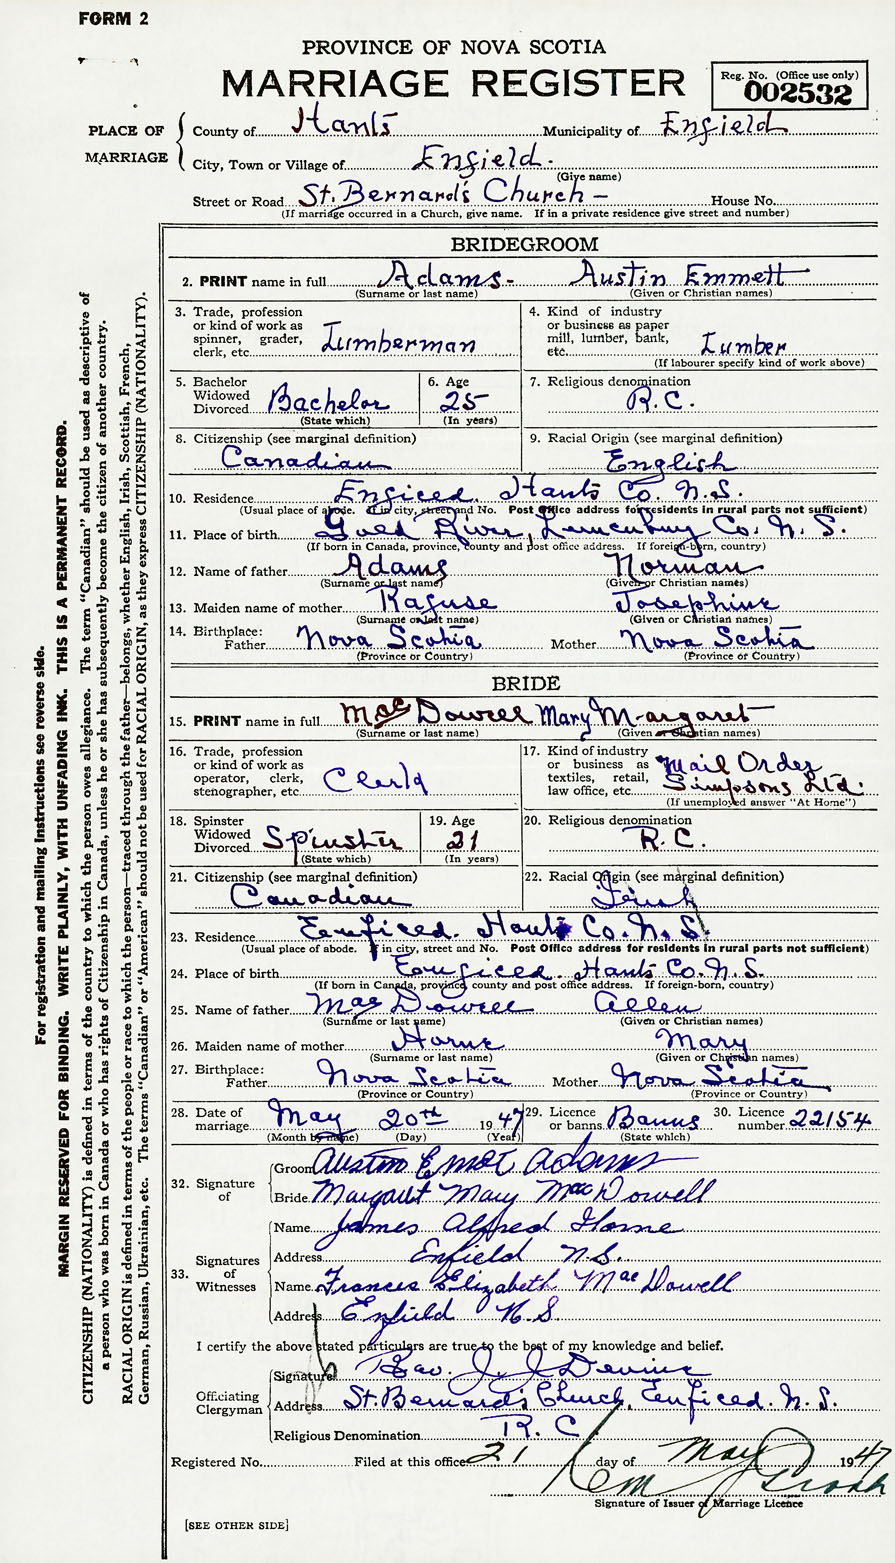 FORM 2
PROVINCE OF NOVA SCOTIA
MARRIAGE REGISTER
Reg. No. (Office use only)
002532
PLACE OF MARRIAGE
County of Hants Municipality of Enfield
City, Town or Village of Enfield.
(Give name)
Street or Road St. Bernard's Church – House No.
(If marriage occurred in a Church, give name. If in a private residence give street and number)
BRIDEGROOM
2. PRINT name in full Adams - Austin Emmett
(Surname or last name) (Given or Christian names)
3. Trade, profession or kind of work as spinner, grader, clerk, etc. Lumberman
4. Kind of industry or business as paper mill, lumber, bank, etc. Lumber
(If labourer specify kind of work above)
5. Bachelor Widowed Divorced Bachelor
(State which)
6. Age 25
(In years)
7. Religious denomination R.C.
8. Citizenship (see marginal definition) Canadian
9. Racial Origin (see marginal definition) English
10. Residence Enfield Hants Co. N.S.
(Usual place of abode. If in city, street and No. Post Office address for residents in rural parts not sufficient)
11. Place of birth Gold River, Lunenburg Co. N.S.
(If born in Canada, province, county and post office address. If foreign-born, country)
12. Name of father Adams Norman
(Surname or last name) (Given or Christian names)
13. Maiden name of mother Rafuse Josephine
(Surname or last name) (Given or Christian names)
14. Birthplace: Father Nova Scotia Mother Nova Scotia
(Province or Country) (Province or Country)
BRIDE
15. PRINT name in full MacDowell Mary Margaret
(Surname or last name) (Given or Christian names)
16. Trade, profession or kind of work as operator, clerk, stenographer, etc. Clerk
17. Kind of industry or business as textiles, retail, law office, etc. Mail Order Simpsons Ltd.
(If unemployed answer "At Home")
18. Spinster Widowed Divorced Spinster
(State which)
19. Age 21
(In years)
20. Religious denomination R.C.
21. Citizenship (see marginal definition) Canadian
22. Racial Origin (see marginal definition) Irish
23. Residence Enfield. Hants Co. N.S.
(Usual place of abode. If in city, street and No. Post Office address for residents in rural parts not sufficient)
24. Place of birth Enfield. Hants Co. N.S.
(If born in Canada, province, county and post office address. If foreign-born, country)
25. Name of father MacDowell Allen
(Surname or last name) (Given or Christian names)
26. Maiden name of mother Horne Mary
(Surname or last name) (Given or Christian names)
27. Birthplace: Father Nova Scotia Mother Nova Scotia
(Province or Country) (Province or Country)
28. Date of marriage May 20th 1947
(Month by name) (Day) (Year)
29. Licence or banns Banns
(State which)
30. Licence number 22154
32. Signature of
Groom Austin Emot Adams
Bride Margaret Mary MacDowell
33. Signatures of Witnesses
Name James Alfred Horne
Address Enfield N.S.
Name Frances Elizabeth MacDowell
Address Enfield N.S.
I certify the above stated particulars are true to the best of my knowledge and belief.
Officiating Clergyman
Signature Rev. J. J. Devine
Address St. Bernard's Church, Enfield. N.S.
Religious Denomination R.C.
Registered No. Filed at this office 21 day of May 1947
Signature of Issuer of Marriage Licence
[SEE OTHER SIDE]
For registration and mailing instructions see reverse side.
MARGIN RESERVED FOR BINDING. WRITE PLAINLY, WITH UNFADING INK. THIS IS A PERMANENT RECORD.
CITIZENSHIP (NATIONALITY) is defined in terms of the country to which the person owes allegiance. The term "Canadian" should be used as descriptive of
a person who was born in Canada or who has rights of Citizenship in Canada, unless he or she has subsequently become the citizen of another country.
RACIAL ORIGIN is defined in terms of the people or race to which the person—traced through the father—belongs, whether English, Irish, Scottish, French,
German, Russian, Ukrainian, etc. The terms "Canadian" or "American" should not be used for RACIAL ORIGIN, as they express CITIZENSHIP (NATIONALITY).